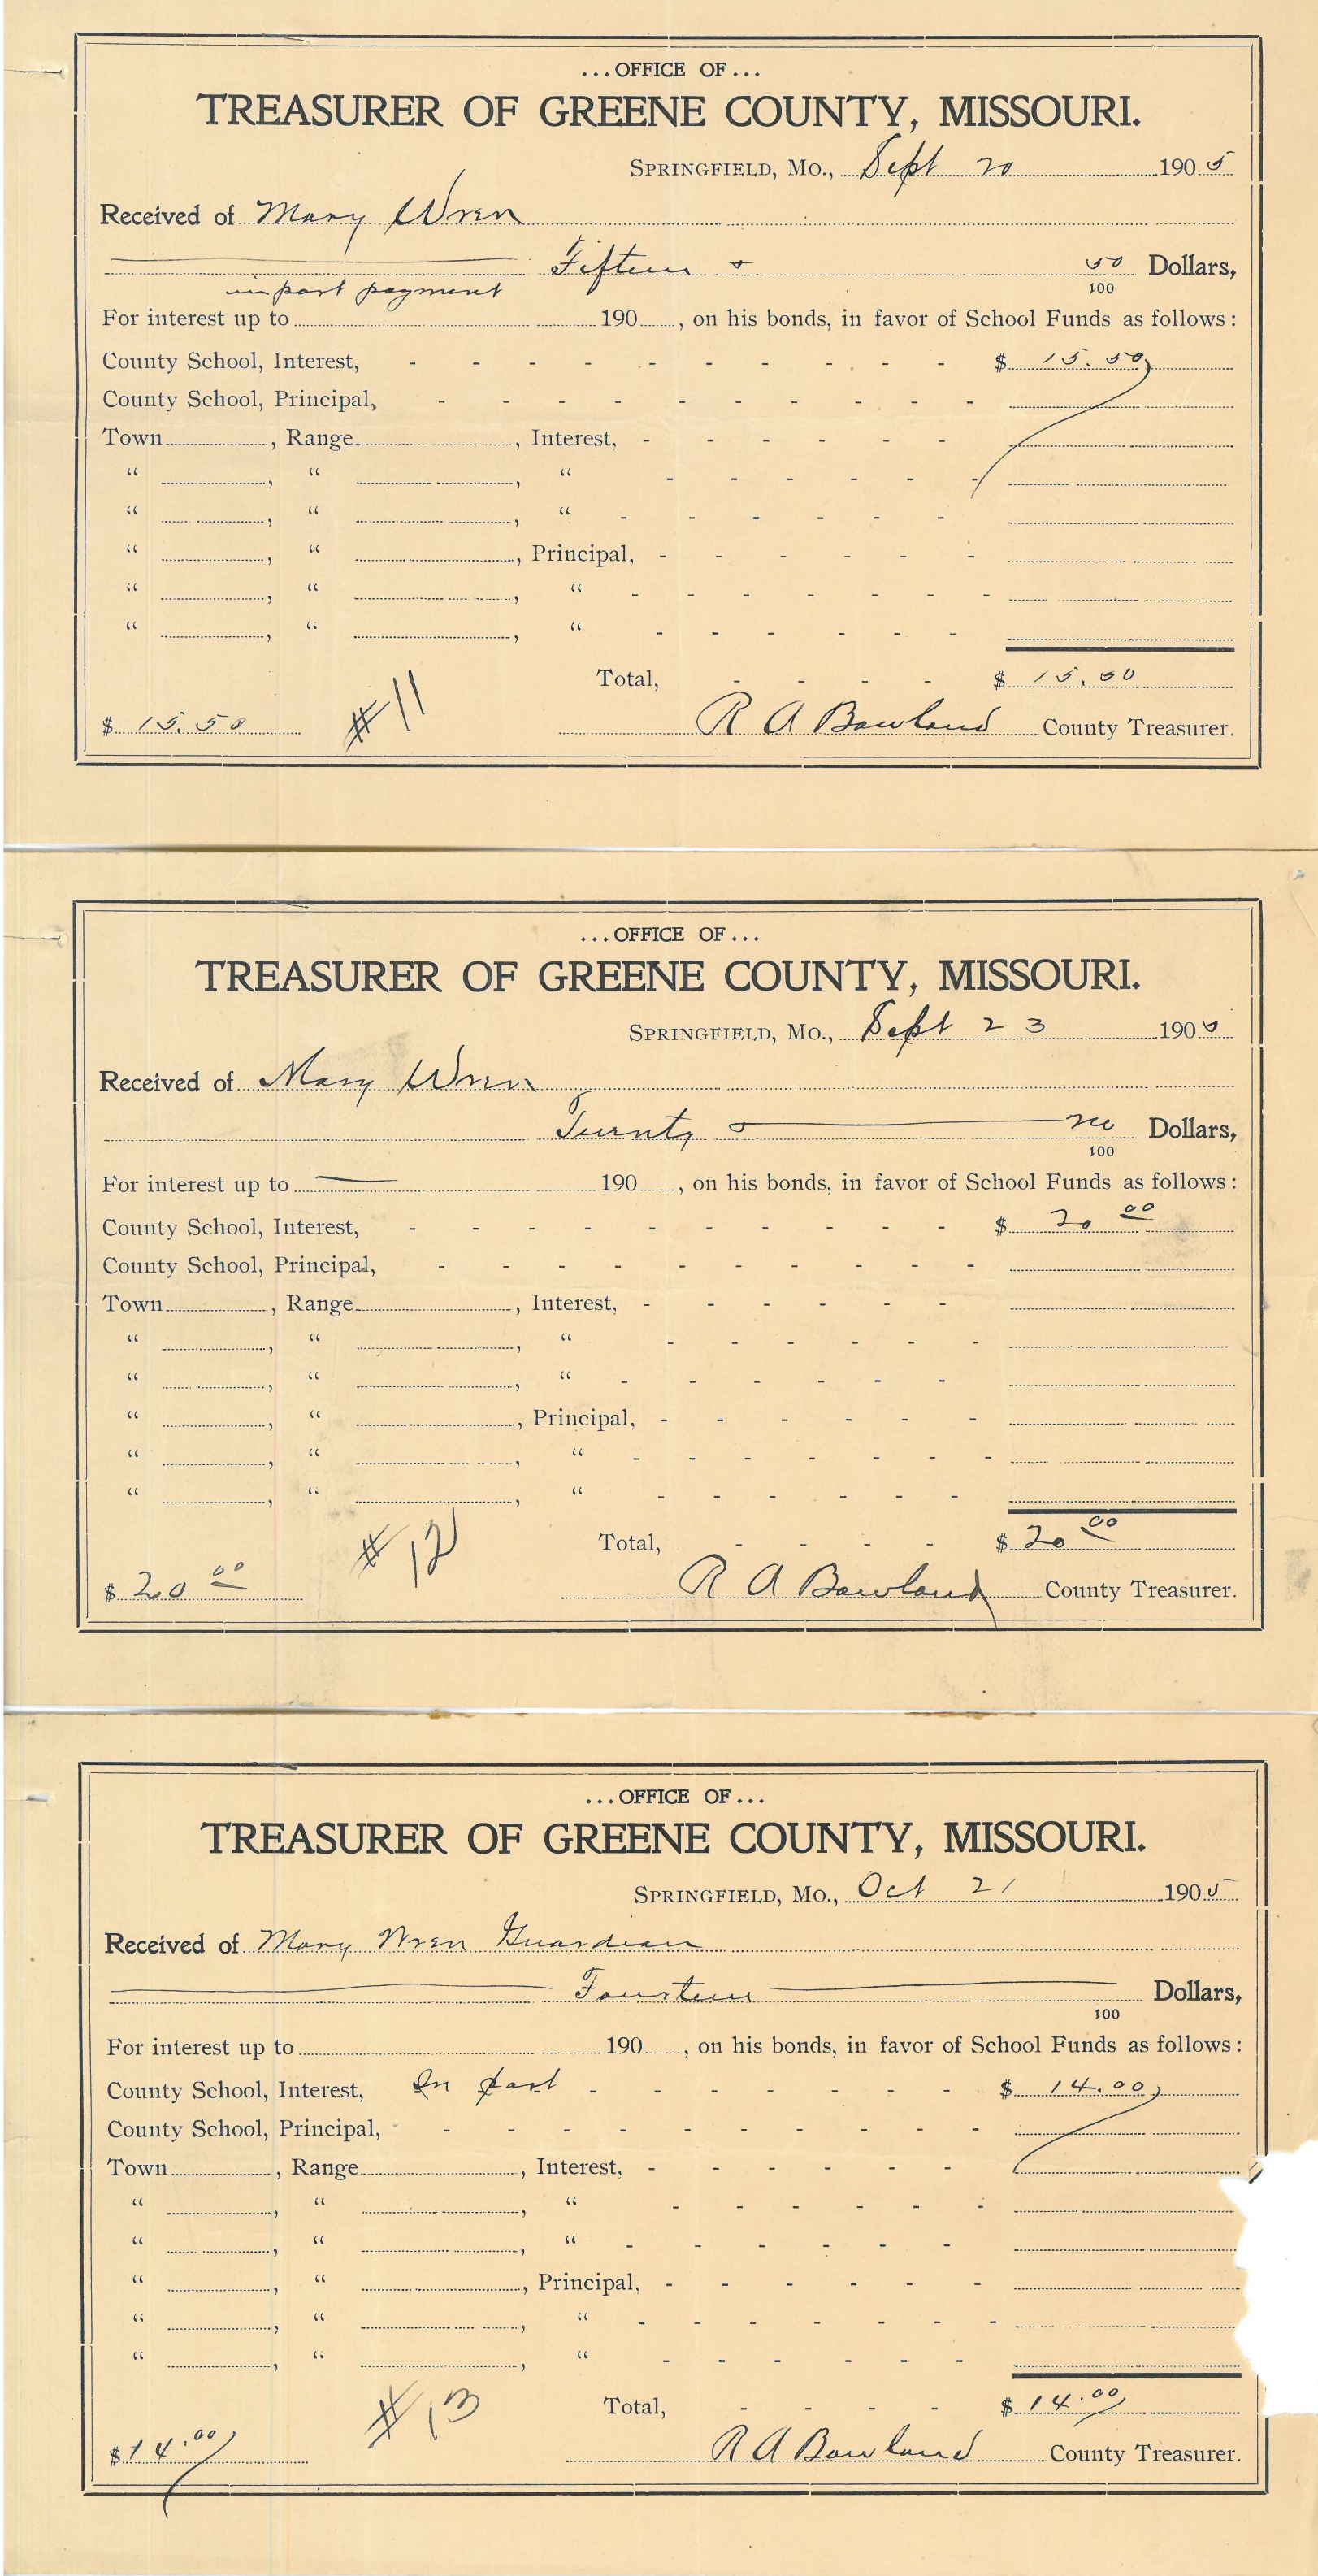 ...OFFICE OF...
TREASURER OF GREENE COUNTY, MISSOURI.
SPRINGFIELD, MO., Sept 20 1905
Received of Mary Wren
Fifteen & 50/100 Dollars,
in part payment
For interest up to 190 , on his bonds, in favor of School Funds as follows:
County School, Interest, - - - - - - - - - - $ 15.50
County School, Principal, - - - - - - - - - -
Town , Range , Interest, - - - - - -
“ , “ , “ - - - - - -
“ , “ , “ - - - - - -
“ , “ , Principal, - - - - - -
“ , “ , “ - - - - - - -
“ , “ , “ - - - - - -
Total, - - - - $ 15.50
$ 15.50 #11 R A Bowland County Treasurer.
...OFFICE OF...
TREASURER OF GREENE COUNTY, MISSOURI.
SPRINGFIELD, MO., Sept 23 1905
Received of Mary Wren
Twenty & no/100 Dollars,
For interest up to 190 , on his bonds, in favor of School Funds as follows:
County School, Interest, - - - - - - - - - - $ 20 00
County School, Principal, - - - - - - - - - -
Town , Range , Interest, - - - - - -
“ , “ , “ - - - - - -
“ , “ , “ - - - - - -
“ , “ , Principal, - - - - - -
“ , “ , “ - - - - - - -
“ , “ , “ - - - - - -
Total, - - - - $ 20 00
$ 20 00 #12 R A Bowland County Treasurer.
...OFFICE OF...
TREASURER OF GREENE COUNTY, MISSOURI.
SPRINGFIELD, MO., Oct 21 1905
Received of Mary Wren Guardian
Fourteen 100 Dollars,
For interest up to 190 , on his bonds, in favor of School Funds as follows:
County School, Interest, In part - - - - - - - $ 14.00
County School, Principal, - - - - - - - - - -
Town , Range , Interest, - - - - - -
“ , “ , “ - - - - - -
“ , “ , “ - - - - - -
“ , “ , Principal, - - - - - -
“ , “ , “ - - - - - - -
“ , “ , “ - - - - - -
Total, - - - - $ 14.00
$ 14.00 #13 R A Bowland County Treasurer.